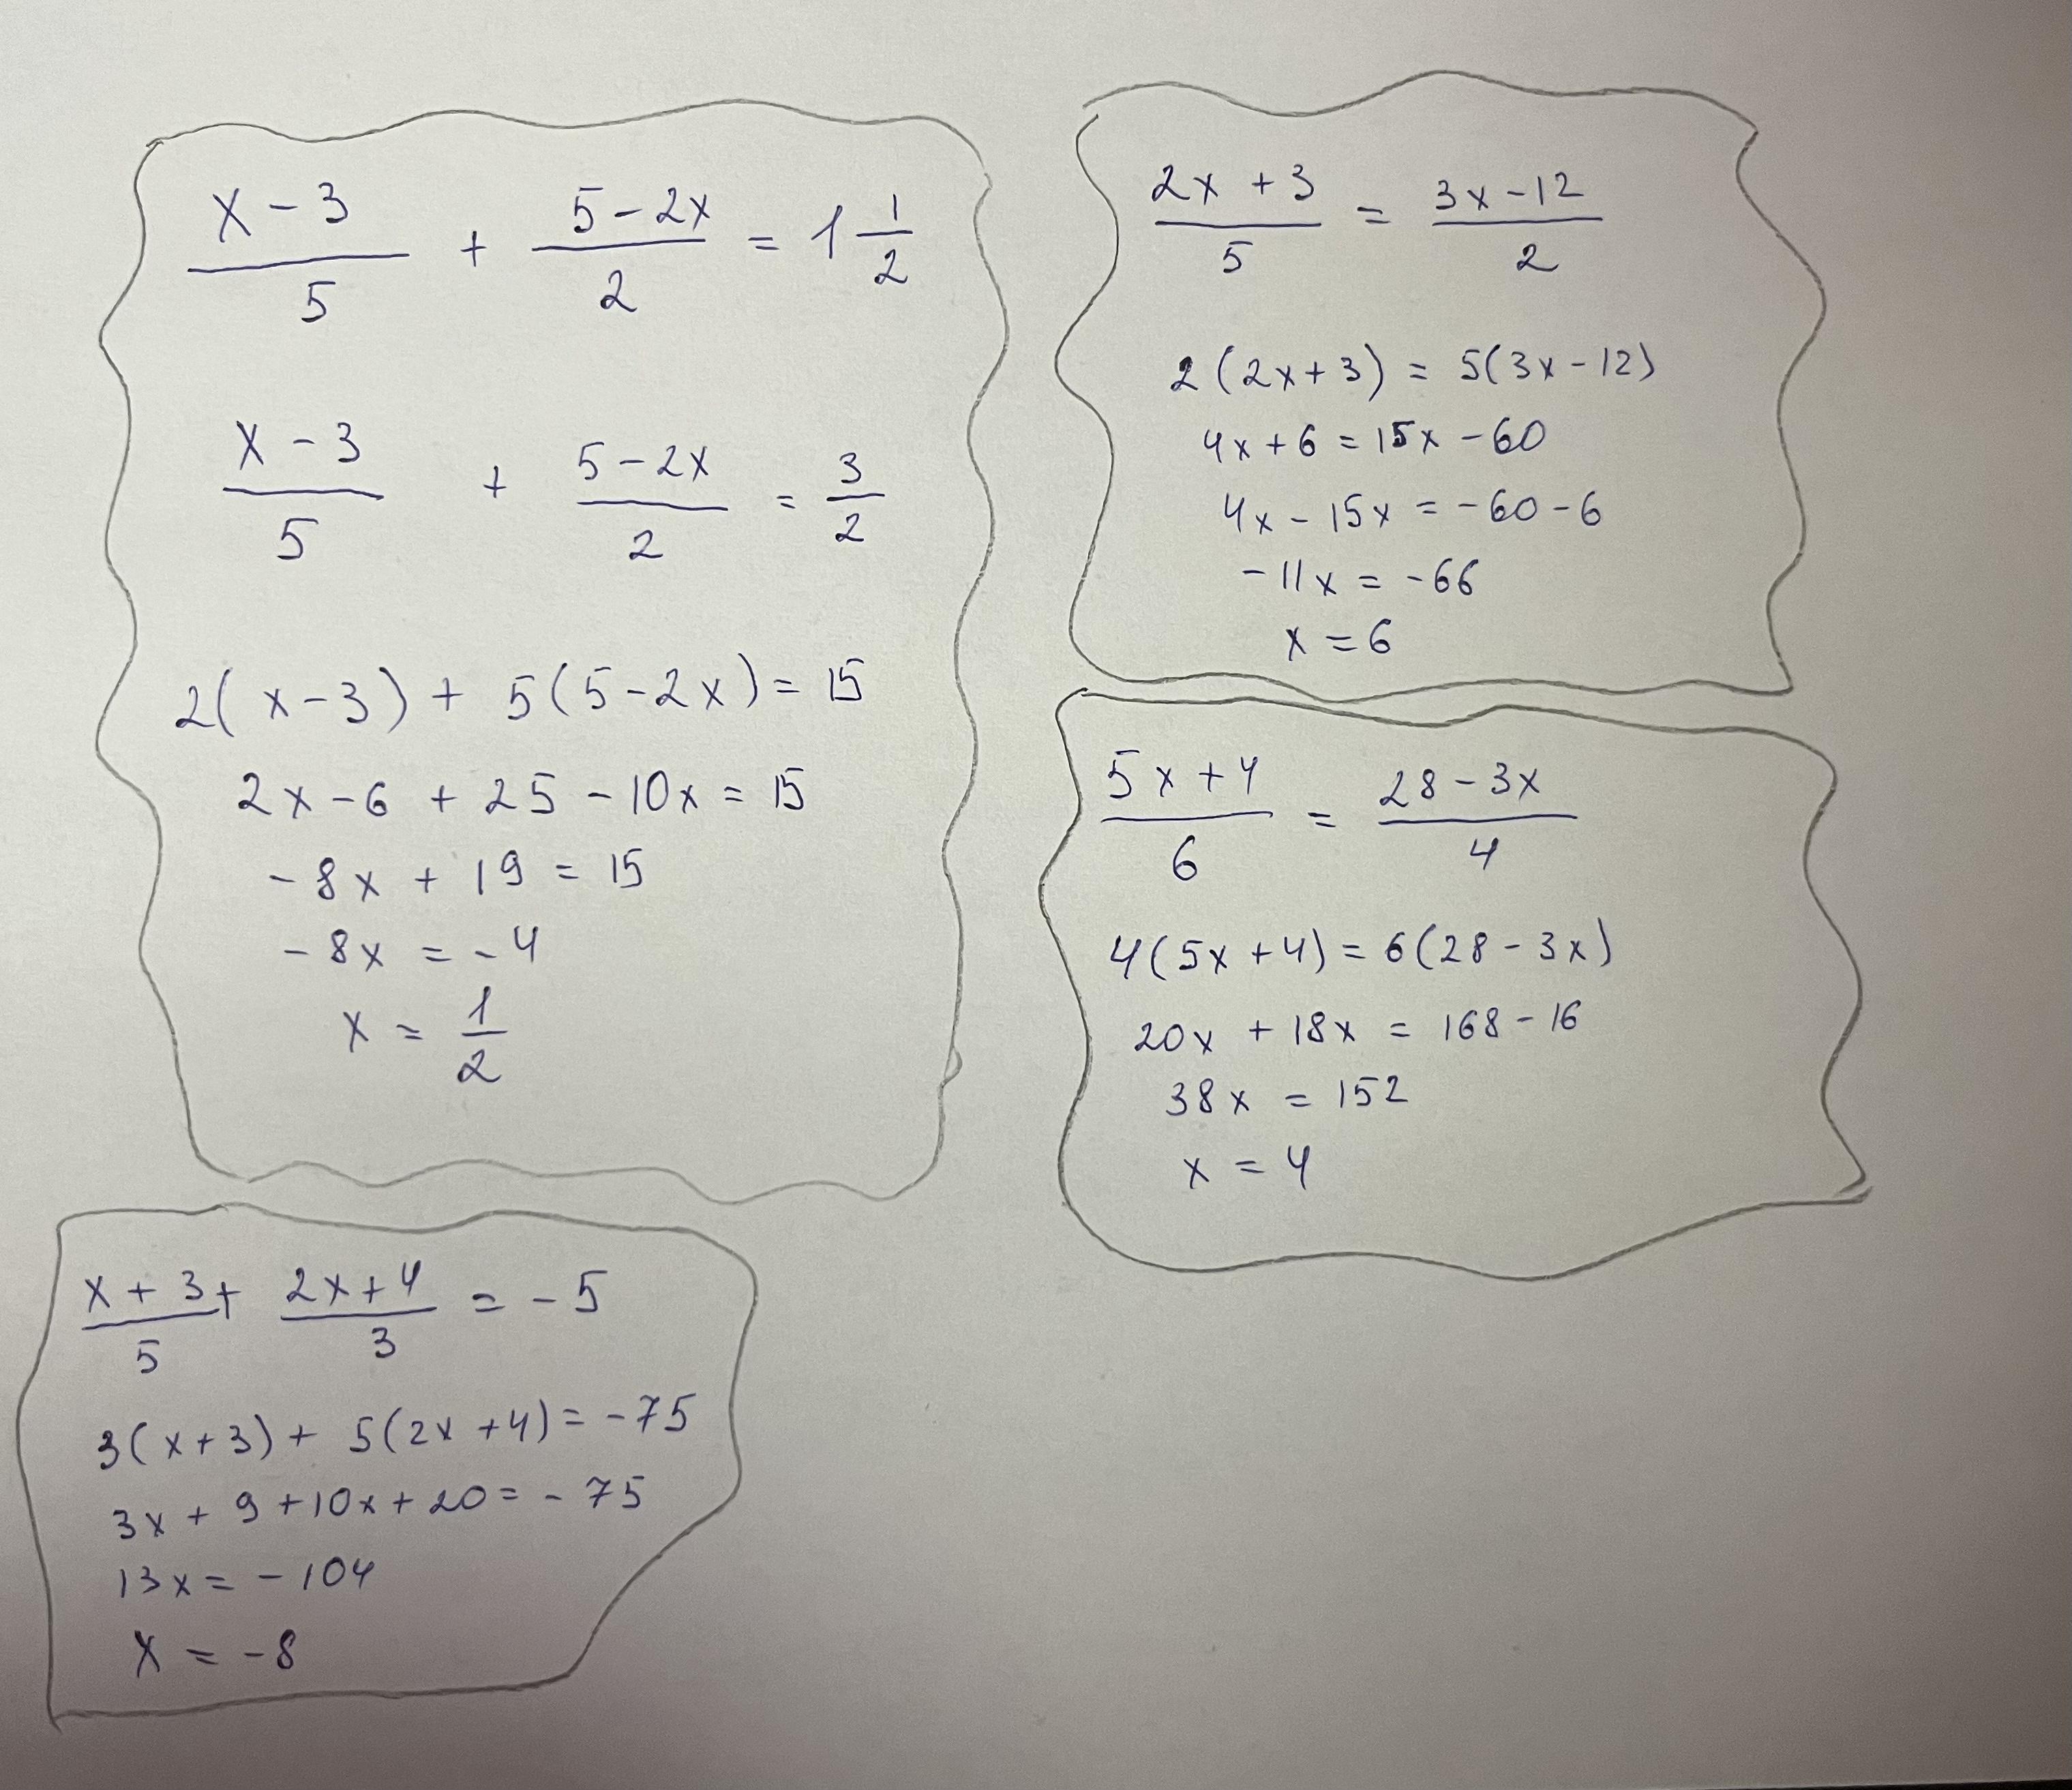 (x - 3)/5 + (5 - 2x)/2 = 1 1/2
(x - 3)/5 + (5 - 2x)/2 = 3/2
2(x - 3) + 5(5 - 2x) = 15
2x - 6 + 25 - 10x = 15
- 8x + 19 = 15
- 8x = - 4
x = 1/2
(2x + 3)/5 = (3x - 12)/2
2(2x + 3) = 5(3x - 12)
4x + 6 = 15x - 60
4x - 15x = - 60 - 6
- 11x = - 66
x = 6
(5x + 4)/6 = (28 - 3x)/4
4(5x + 4) = 6(28 - 3x)
20x + 18x = 168 - 16
38x = 152
x = 4
(x + 3)/5 + (2x + 4)/3 = - 5
3(x + 3) + 5(2x + 4) = - 75
3x + 9 + 10x + 20 = - 75
13x = - 104
x = - 8